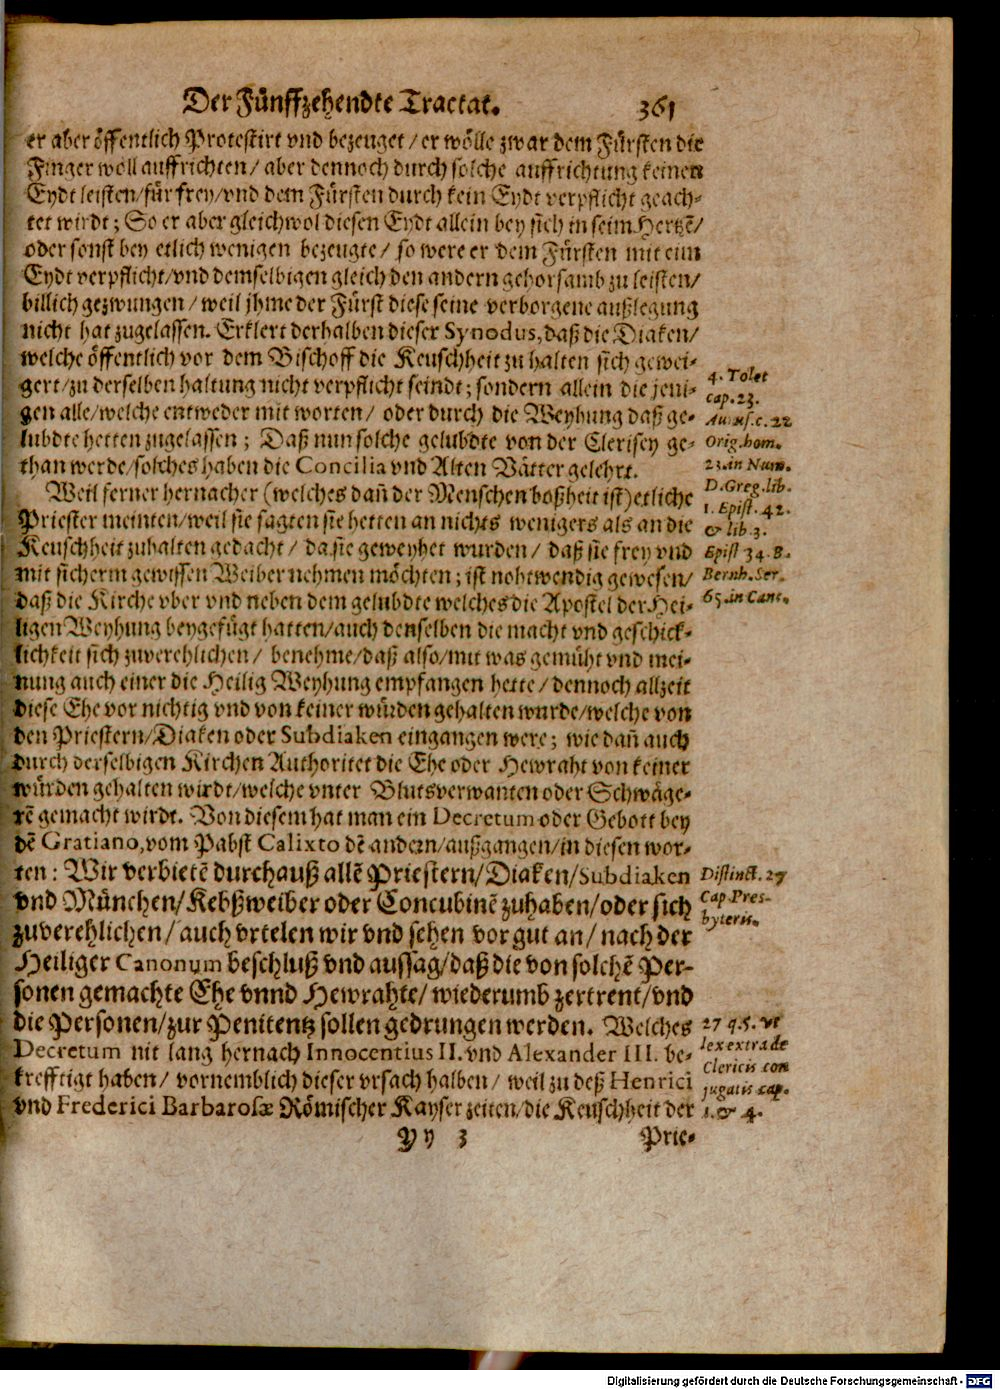 Der Fünffzehendte Tractat. 361
er aber öffentlich Protestirt vnd bezeuget / er wölle zwar dem Fürsten die
Finger woll auffrichten / aber dennoch durch solche auffrichtung keinen
Eydt leisten / für frey / vnd dem Fürsten durch kein Eydt verpflicht geach-
tet wirdt ; So er aber gleichwol diesen Eydt allein bey sich in seim Hertzē /
oder sonst bey etlich wenigen bezeugte / so were er dem Fürsten mit eim
Eydt verpflicht / vnd demselbigen gleich den andern gehorsamb zu leisten /
billich gezwungen / weil jhme der Fürst diese seine verborgene außlegung
nicht hat zugelassen. Erklert derhalben dieser Synodus, daß die Diaken /
welche öffentlich vor dem Bischoff die Keuschheit zu halten sich gewei-
gert / zu derselben haltung nicht verpflicht seindt ; sondern allein die jeni-
gen alle / welche entweder mit worten / oder durch die Weyhung daß ge-
lubdte hetten zugelassen ; Daß nun solche gelubdte von der Clerisey ge-
than werde / solches haben die Concilia vnd Alten Vätter gelehrt.
4. Tolet
cap. 23.
Aurasi. c. 22
Orig. hom.
23. in Num.
D. Greg. lib.
1. Epist. 42.
& lib. 3.
Epist 34. B.
Bernh. Ser.
65. in Cant.
Weil ferner hernacher (welches dañ der Menschen boßheit ist) etliche
Priester meinten / weil sie sagten sie hetten an nichts wenigers als an die
Keuschheit zuhalten gedacht / da sie geweyhet wurden / daß sie frey vnd
mit sicherm gewissen Weiber nehmen möchten ; ist nohtwendig gewesen /
daß die Kirche vber vnd neben dem gelubdte welches die Apostel der Hei-
ligen Weyhung beygefügt hatten / auch denselben die macht vnd geschick-
lichkeit sich zuverehlichen / benehme / daß also / mit was gemüht vnd mei-
nung auch einer die Heilig Weyhung empfangen hette / dennoch allzeit
diese Ehe vor nichtig vnd von keiner würden gehalten wurde / welche von
den Priestern / Diaken oder Subdiaken eingangen were ; wie dañ auch
durch derselbigen Kirchen Authoritet die Ehe oder Hewraht von keiner
würden gehalten wirdt / welche vnter Blutsverwanten oder Schwäge-
rē gemacht wirdt. Von diesem hat man ein Decretum oder Gebott bey
dē Gratiano, vom Pabst Calixto dē andern / außgangen / in diesen wor-
ten : Wir verbietē durchauß allē Priestern / Diaken / Subdiaken
vnd München / Kebßweiber oder Concubinē zuhaben / oder sich
zuverehlichen / auch vrtelen wir vnd sehen vor gut an / nach der
Heiliger Canonum beschluß vnd aussag / daß die von solchē Per-
sonen gemachte Ehe vnnd Hewrahte / wiederumb zertrent / vnd
die Personen / zur Penitentz sollen gedrungen werden. Welches
Decretum nit lang hernach Innocentius II. vnd Alexander III. be-
krefftigt haben / vornemblich dieser vrsach halben / weil zu deß Henrici
vnd Frederici Barbarosæ Römischer Kayser zeiten / die Keuschheit der
Distinct. 27
Cap Pres-
byteris.
27 q. 5. vt
lex extra de
Clericis con
jugatis cap.
1. & 4.
Yy 3 Prie-
Digitalisierung gefördert durch die Deutsche Forschungsgemeinschaft - DFG